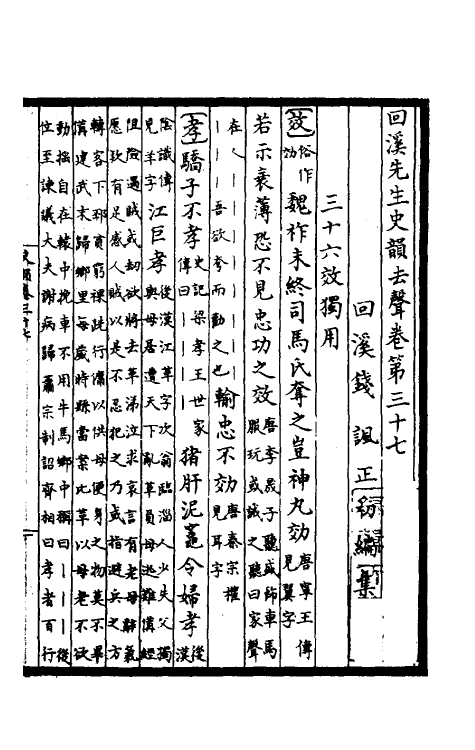 回溪先生史韻去聲卷第三十七
回溪錢諷正初編集
三十六效獨用
效俗作効 魏祚未終司馬氏奪之豈神丸効唐寧王傳見翼字
若示衰薄恐不見忠功之效唐李晟子聽盛飾車馬服玩或誡之聽曰家聲
在人｜｜｜｜｜｜吾欲夸而勸之也 輸忠不効唐秦宗權見耳字
孝 驕子不孝史記梁孝王世家傳曰｜｜｜｜ 猪肝泥竈令婦孝後漢
陰識傳見羊字 江巨孝後漢江革字次翁臨淄人少失父獨與母居遭天下亂革負母逃難備經
阻險遇賊或劫欲將去革涕泣求哀言有老母辭氣
愿欵有足感人賊以是不忍犯之乃或指避兵之方
轉客下邳貧窮裸跣行傭以供母便身之物莫不畢
備建武末歸鄉里每歲時縣當案比革以母老不欲
動搖自在轅中挽車不用牛馬鄉中稱曰｜｜｜後
位至諫議大夫謝病歸肅宗制詔齊相曰孝者百行